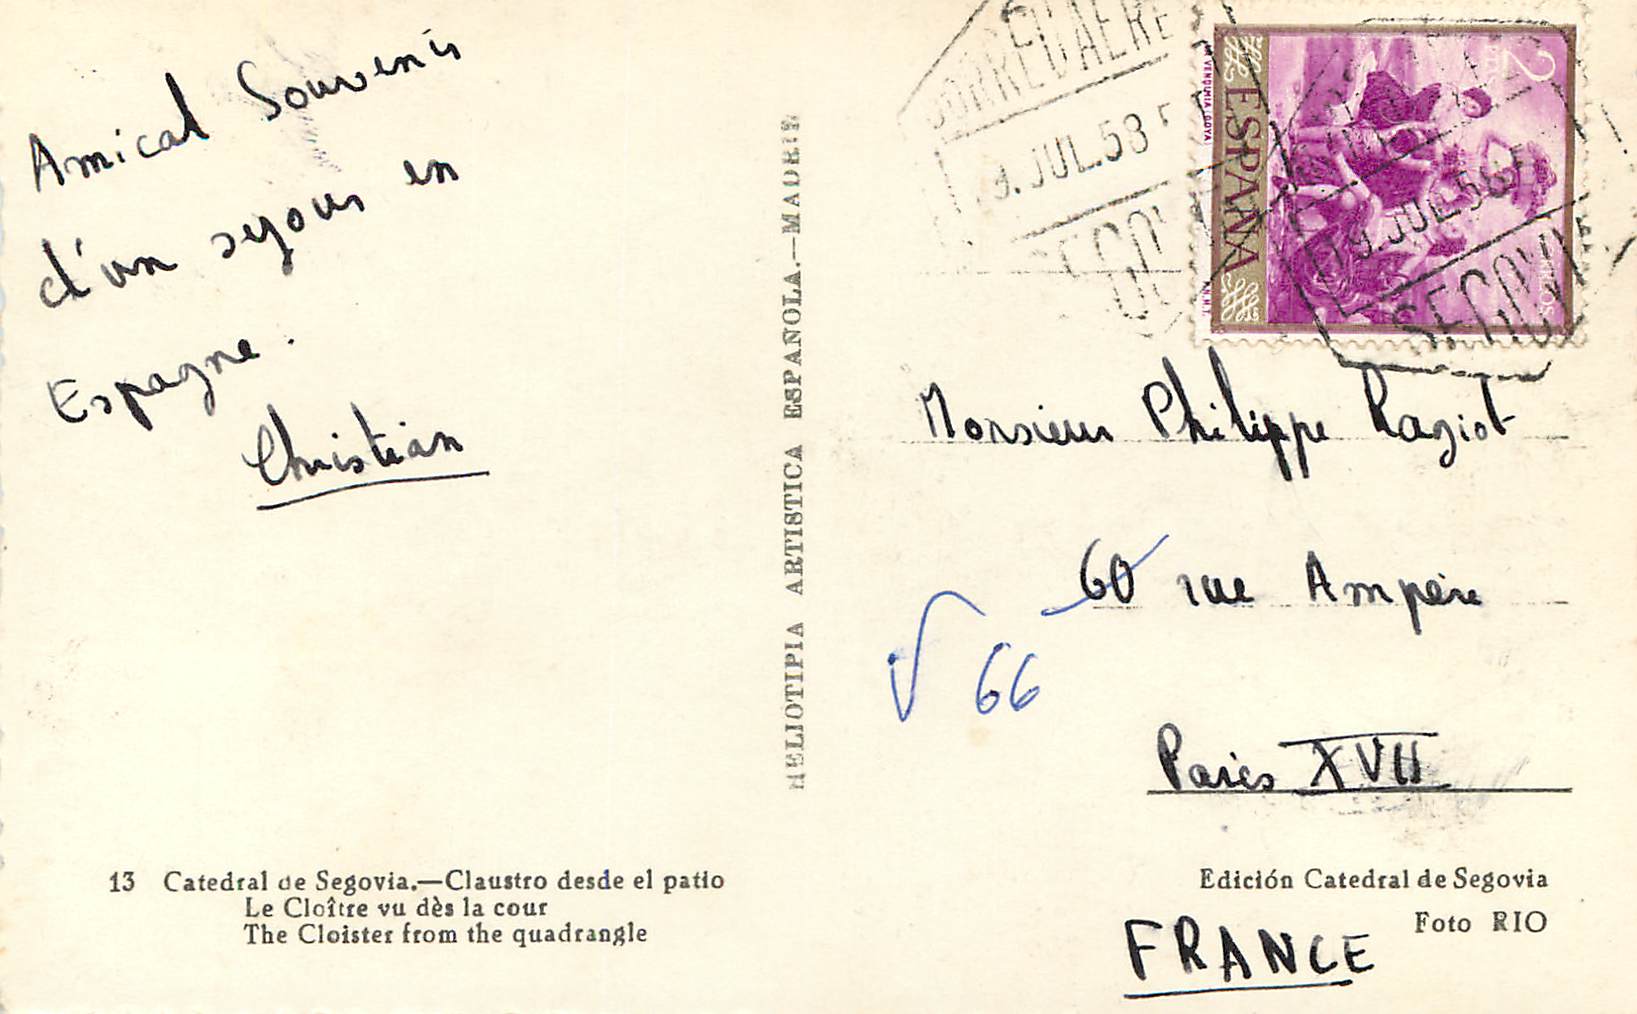 Amical Souvenir
d'un sejour en
Espagne.
Christian
13 Catedral de Segovia.—Claustro desde el patio
Le Cloître vu dès la cour
The Cloister from the quadrangle
HELIOTIPIA ARTISTICA ESPAÑOLA.—MADRID
CORREO AEREO
9. JUL. 58
SEGOVIA
2
PTAS
CORREOS
ESPAÑA
VENDIMIA (GOYA)
F.N.M.T.
19. JUL. 58
SEGOVIA
Monsieur Philippe Ragiot
60 rue Ampère
66
Paris XVII
FRANCE
Edición Catedral de Segovia
Foto RIO